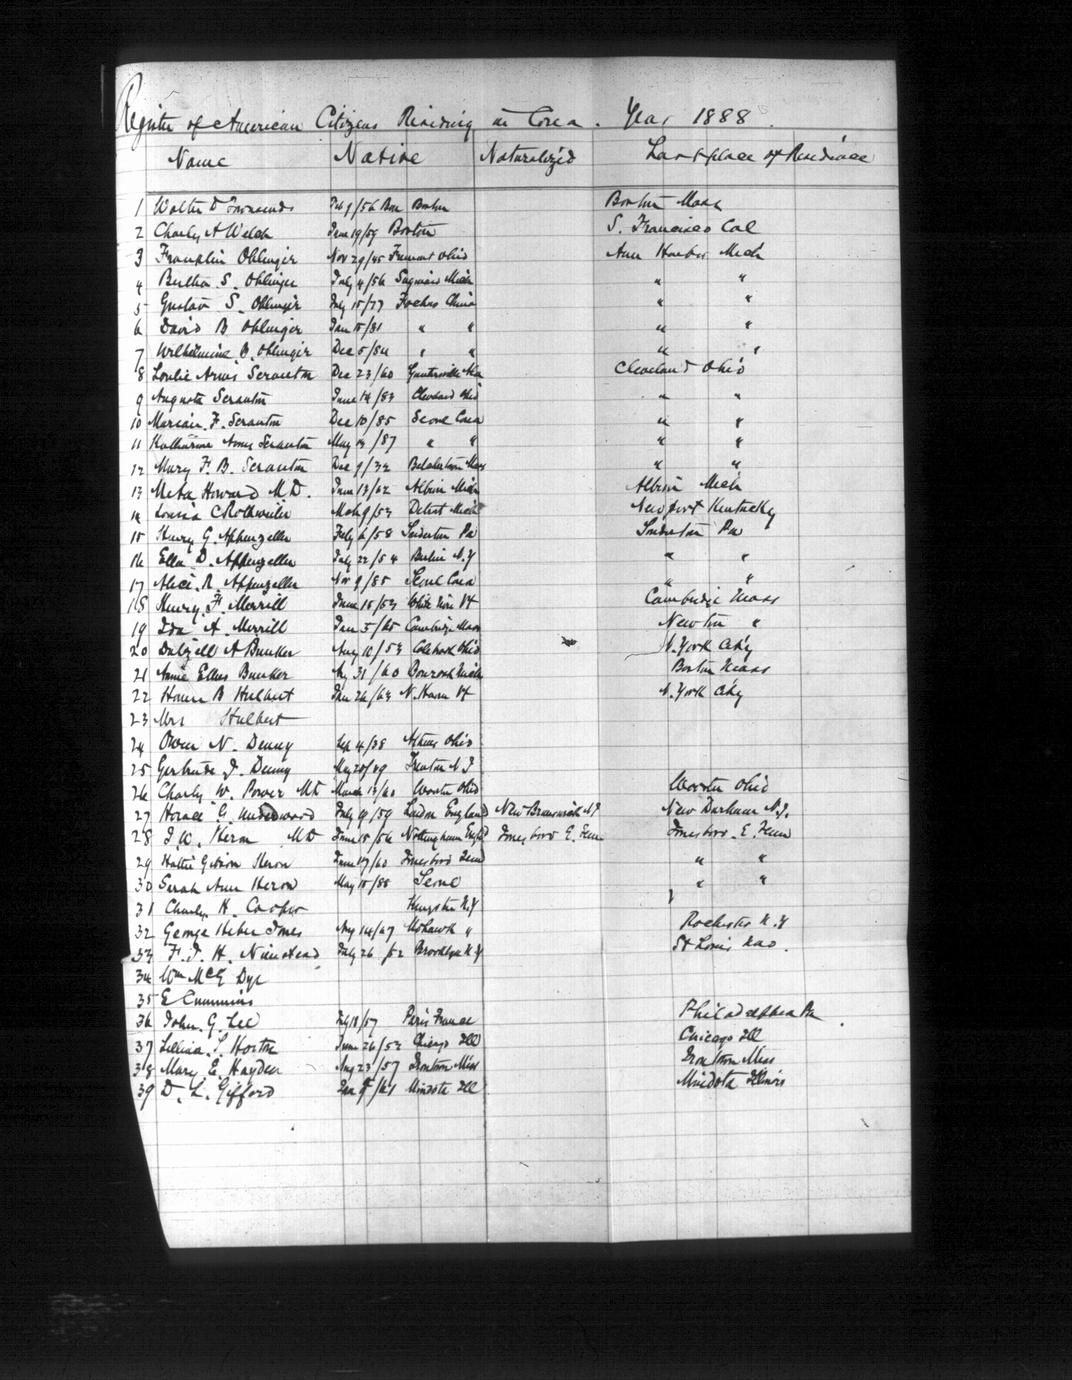 Register of American Citizens Residing in Corea. Year 1888
Name Native Naturalized Last place of Residence
1 Walter D Townsend Feb 9/56 Boston Boston Mass
2 Charley A Welch June 19/59 Boston S. Francisco Cal
3 Franklin Ohlinger Nov 29/45 Fremont Ohio Ann Harbor Mich
4 Bertha S. Ohlinger July 4/56 Saginaw Mich " "
5 Gustav S. Ohlinger July 15/77 Foochow China " "
6 David B Ohlinger Jan 15/81 " " " "
7 Wilhelmine B. Ohlinger Dec 5/84 " " " "
8 Loulie Arms Scranton Dec 23/60 Cleveland Ohio
9 Augusta Scranton June 14/83 Cleveland Ohio " "
10 Marian F. Scranton Dec 10/85 Seoul Corea " "
11 Katharine Arms Scranton May 19/87 " " " "
12 Mary F. B. Scranton Dec 9/32 Belchertown Mass " "
13 Meta Howard M.D. June 13/62 Albion Mich Albion Mich
14 Louisa C Rothweiler Mch 9/53 Detroit Mich Newport Kentucky
15 Henry G Appenzeller Feby 6/58 Souderton Pa Souderton Pa
16 Ella D. Appenzeller July 22/54 Berlin N.Y " "
17 Alice R. Appenzeller Nov 9/85 Seoul Corea " "
18 Henry F. Merrill June 15/53 White River Vt Cambridge Mass
19 Ida A. Merrill Jan 5/65 Cambridge Mass Newton "
20 Dalzell A Bunker Aug 10/53 Ohio N. York City
21 Annie Ellers Bunker 31/60 Mich Boston Mass
22 Homer B Hulbert Jan 26/63 N. Haven Vt N. York City
23 Mrs Hulbert
24 Owen N. Denny Sep 4/38 Athens Ohio
25 Gertrude J. Denny May 20/ Trenton N J
26 Charly W. Power MD March 13/60 Wooster Ohio Wooster Ohio
27 Horace G. Underwood July 19/59 London England New Brunswick N.J New Durham N.J.
28 J. W. Heron MD June 15/56 Nottingham Engd Jonesboro E. Tenn Jonesboro. E. Tenn
29 Hattie Gibson Heron June 17/60 Jonesboro Tenn " "
30 Sarah Ann Heron May 15/88 Seoul " "
31 Charley H. Cooper Kingston N.Y
32 George Heber Jones Aug 14/67 Mohawk " Rochester N.Y
33 F. J. H. Nienstead July 26/52 Brooklyn N.Y St Louis Mo.
34 Wm McE Dye
35 E Cummins
36 John. G. Lee 18/57 Paris France Philadelphia Pa
37 Lillias. S. Horton June 26/53 Chicago Ill Chicago Ill
38 Mary E. Hayden Aug 23/57 Irontown Miss Irontown Miss
39 D. L. Gifford Jan 9/61 Mindota Ill Mindota Illinois